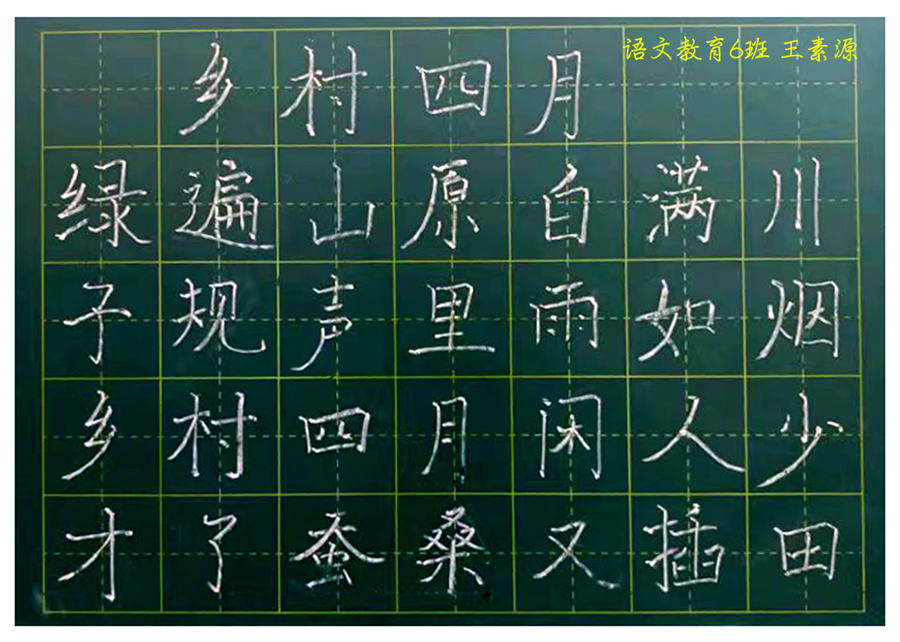 语文教育6班 王素源
乡村四月
绿遍山原白满川
子规声里雨如烟
乡村四月闲人少
才了蚕桑又插田